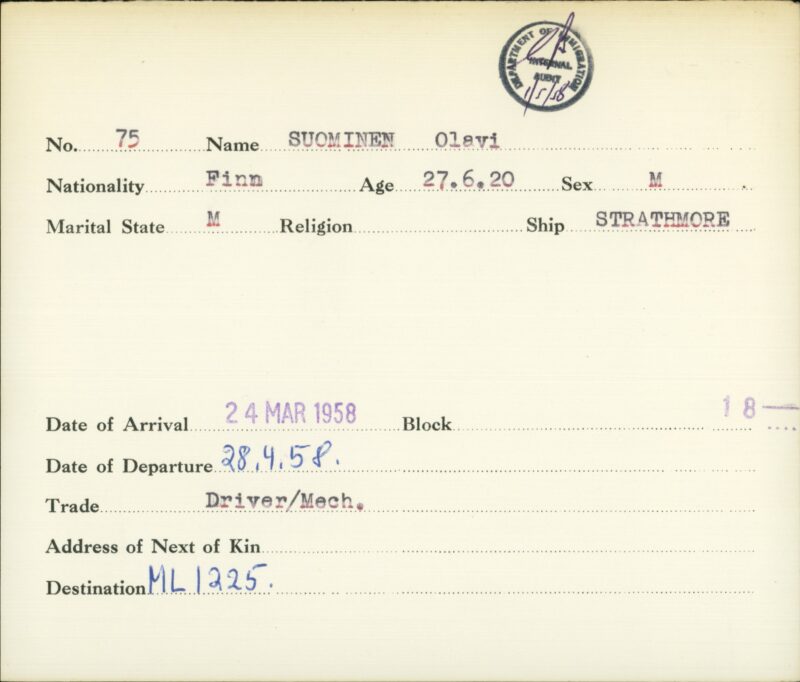 DEPARTMENT OF IMMIGRATION
INTERNAL
AUDIT
1/5/58
No. 75 Name SUOMINEN Olavi
Nationality Finn Age 27.6.20 Sex M
Marital State M Religion Ship STRATHMORE
Date of Arrival 24 MAR 1958 Block 18
Date of Departure 28.4.58.
Trade Driver/Mech.
Address of Next of Kin
Destination ML 1225.